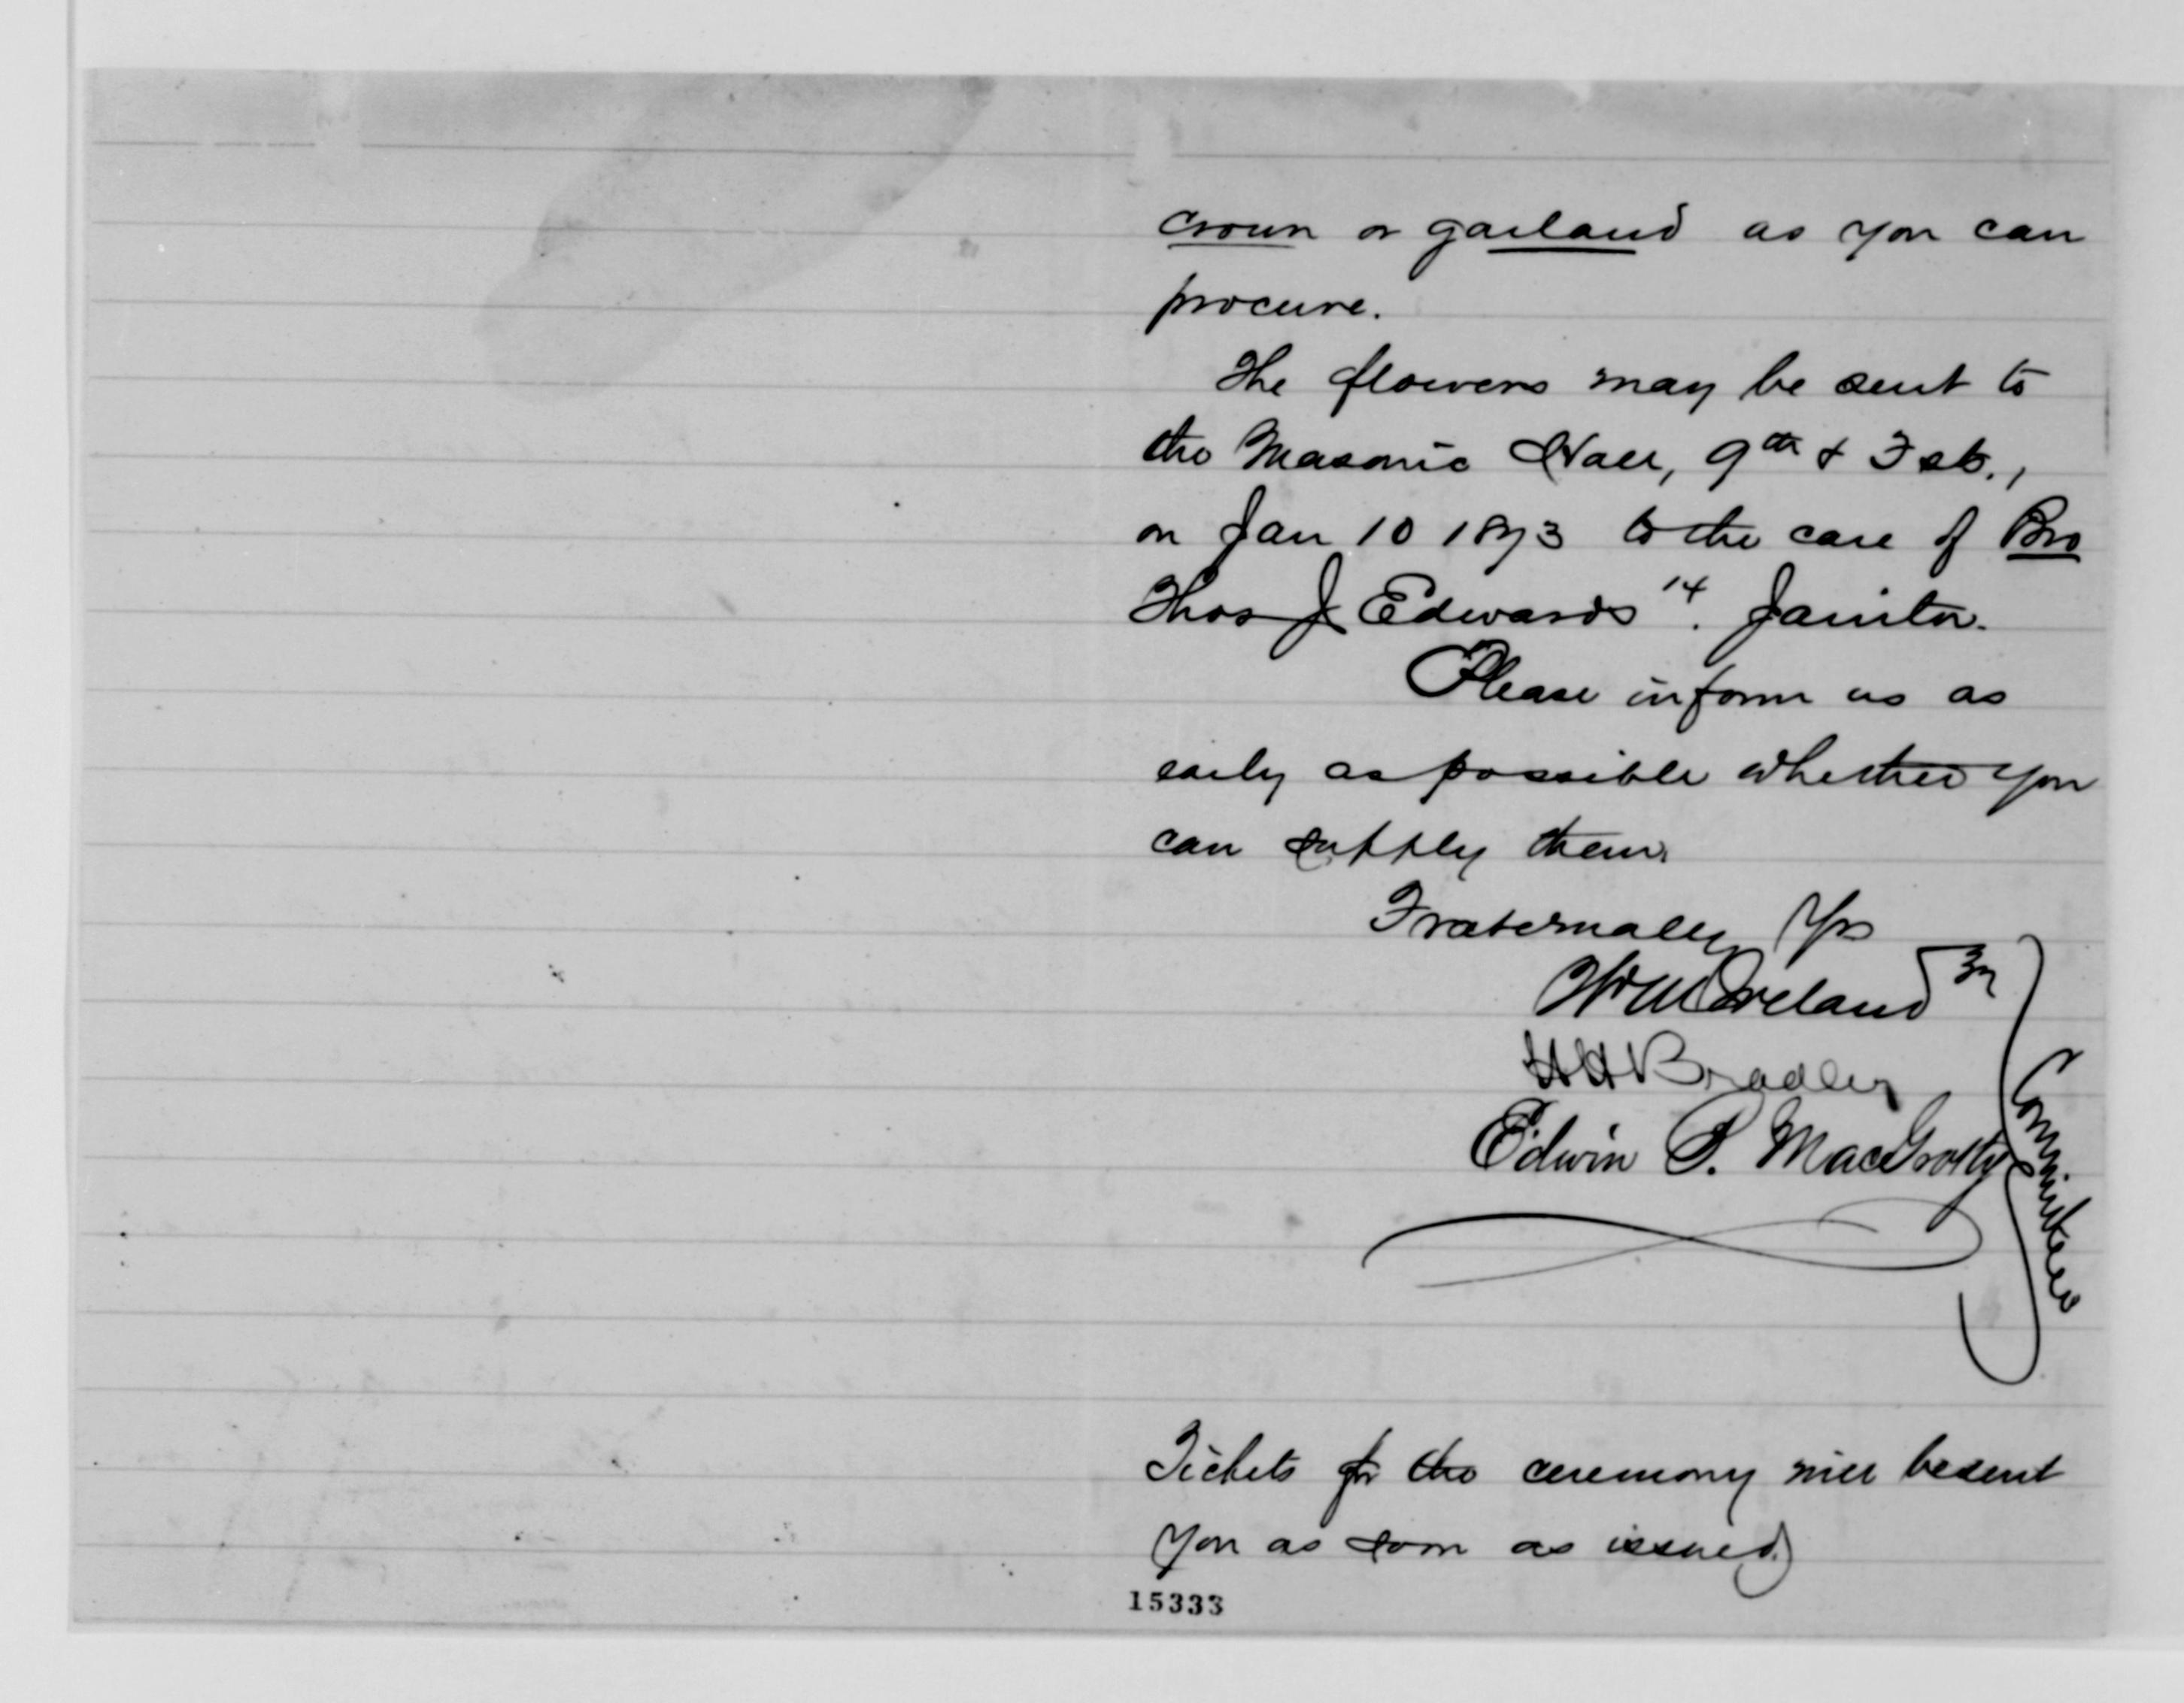 crown or garland as you can
procure.
The flowers may be sent to
the Masonic Hall, 9th & F sts.,
on Jan 10 1873 to the care of Bro
Thos J Edwards 14. Janitor.
Please inform us as
early as possible whether you
can supply them.
Fraternally Yrs
Wm Ireland
H H Bradley
Edwin B. MacGrotty
Committee
Tickets for the ceremony will be sent
you as soon as issued.
15333